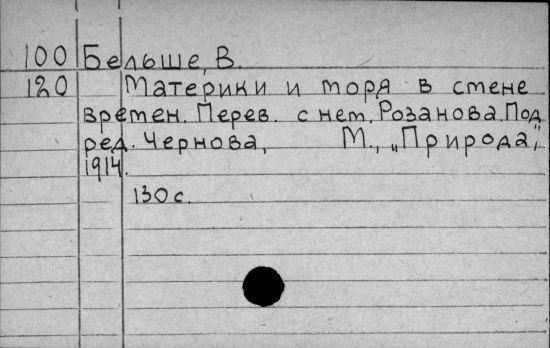 100 Бельше, В.
120 Материки и моря в стене
времен. Перев. с нем. Розанова. Под
ред. Чернова, М., „Природа",
1914.
130 с.